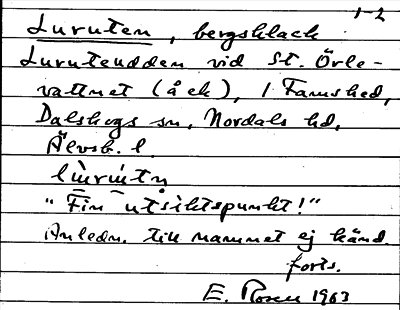 1-2
Luruten, bergsklack
Lurutenudden vid St. Örle-
vattnet (å ek), i Famshed,
Dalskogs sn, Nordals hd,
Älvsb. l.
"Fin utsiktspunkt!"
Anledn. till namnet ej känd.
forts.
E. Rosen 1963